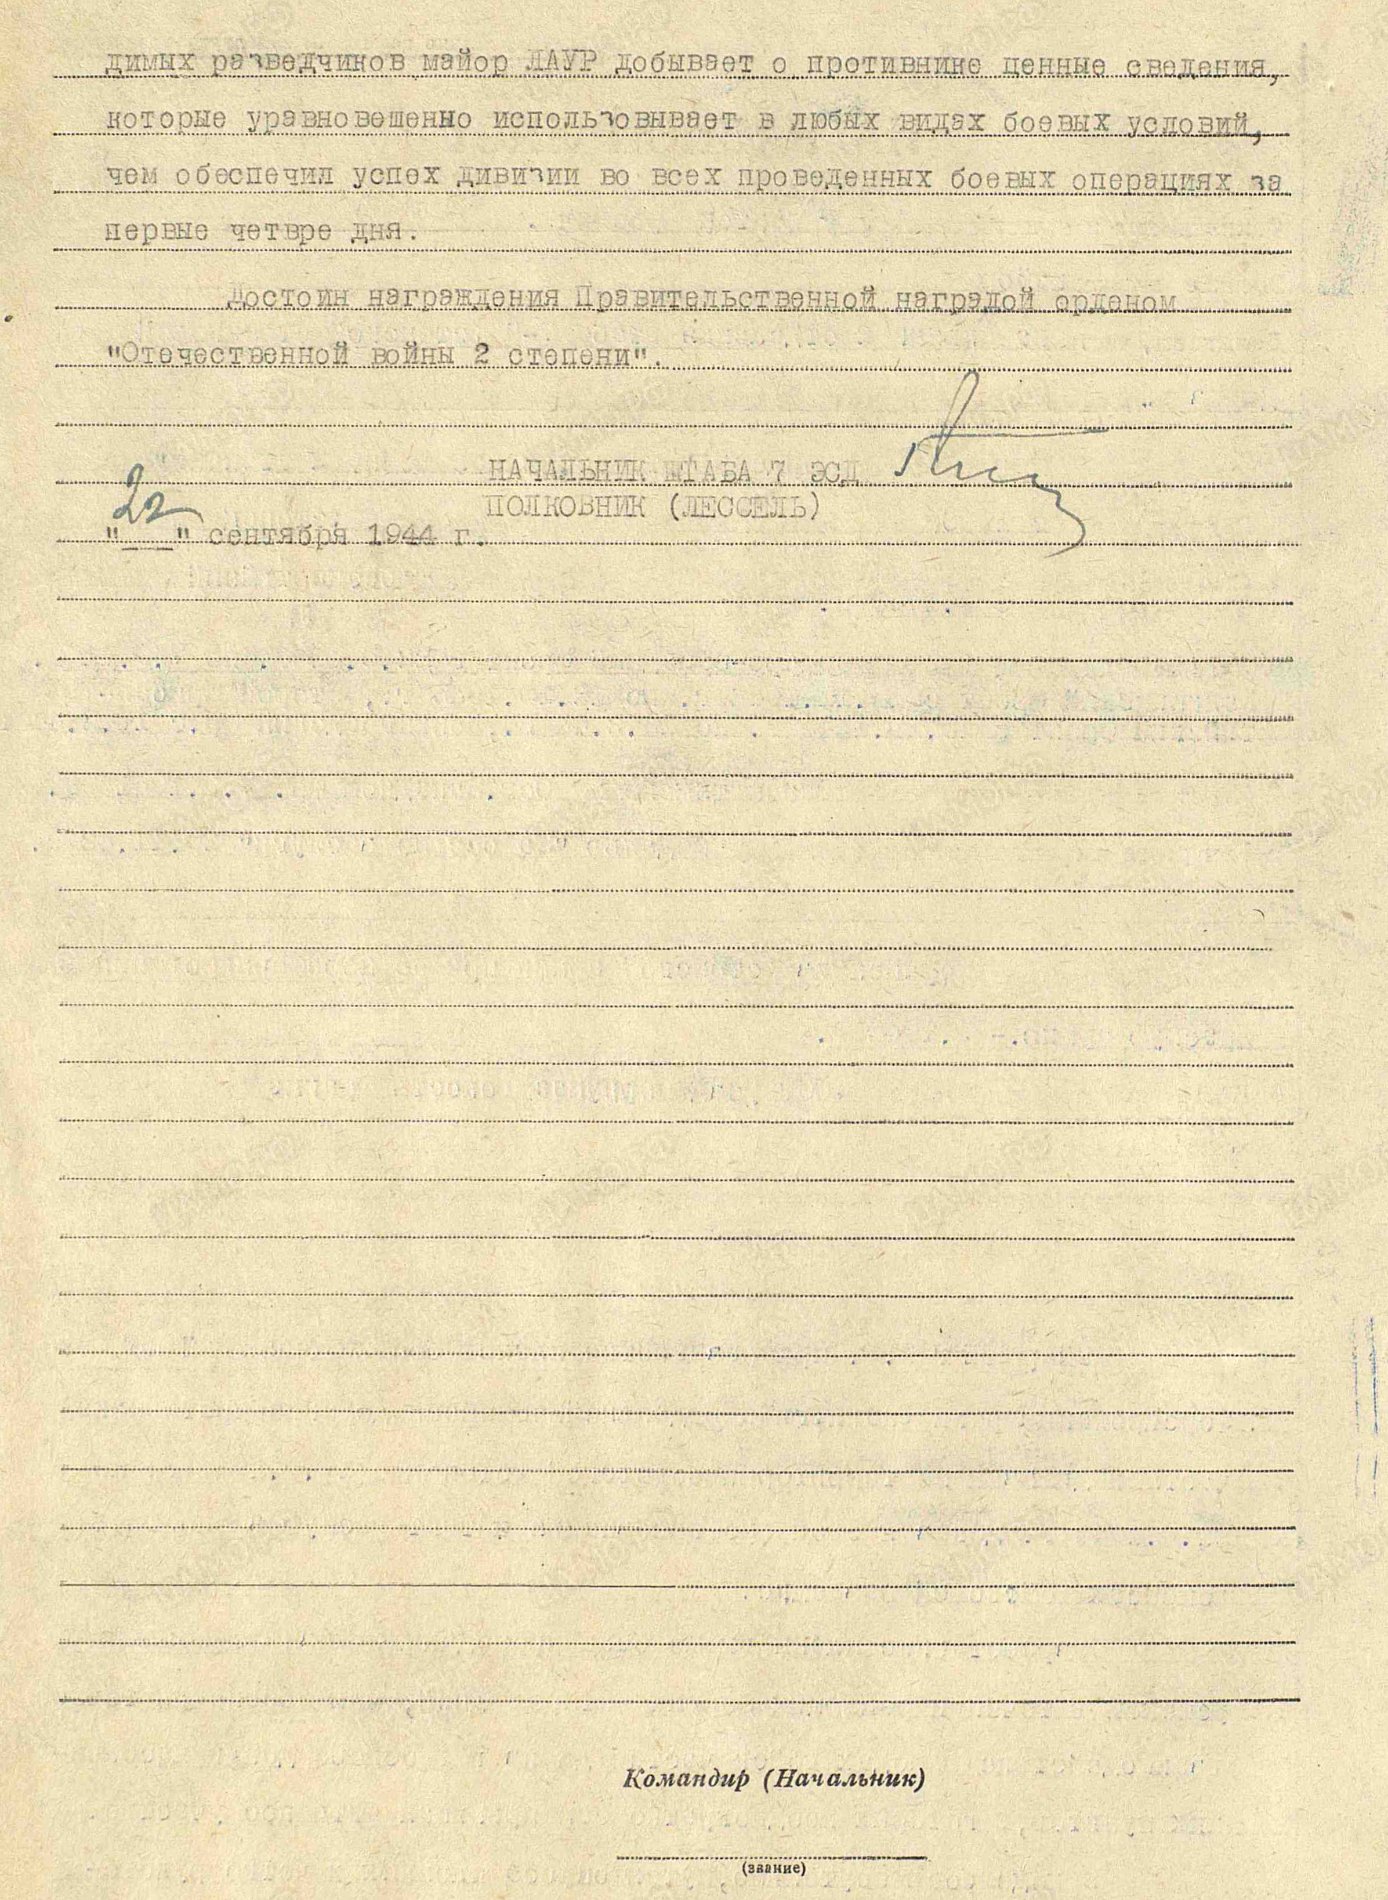 димых разведчиков майор ЛАУР добывает о противнике ценные сведения,
которые уравновешенно использовывает в любых видах боевых условий,
чем обеспечил успех дивизии во всех проведенных боевых операциях за
первые четвре дня.
Достоин награждения Правительственной наградой орденом
"Отечественной войны 2 степени".
НАЧАЛЬНИК ШТАБА 7 ЭСД
ПОЛКОВНИК (ЛЕССЕЛЬ)
"22" сентября 1944 г.
Командир (Начальник)
(звание)